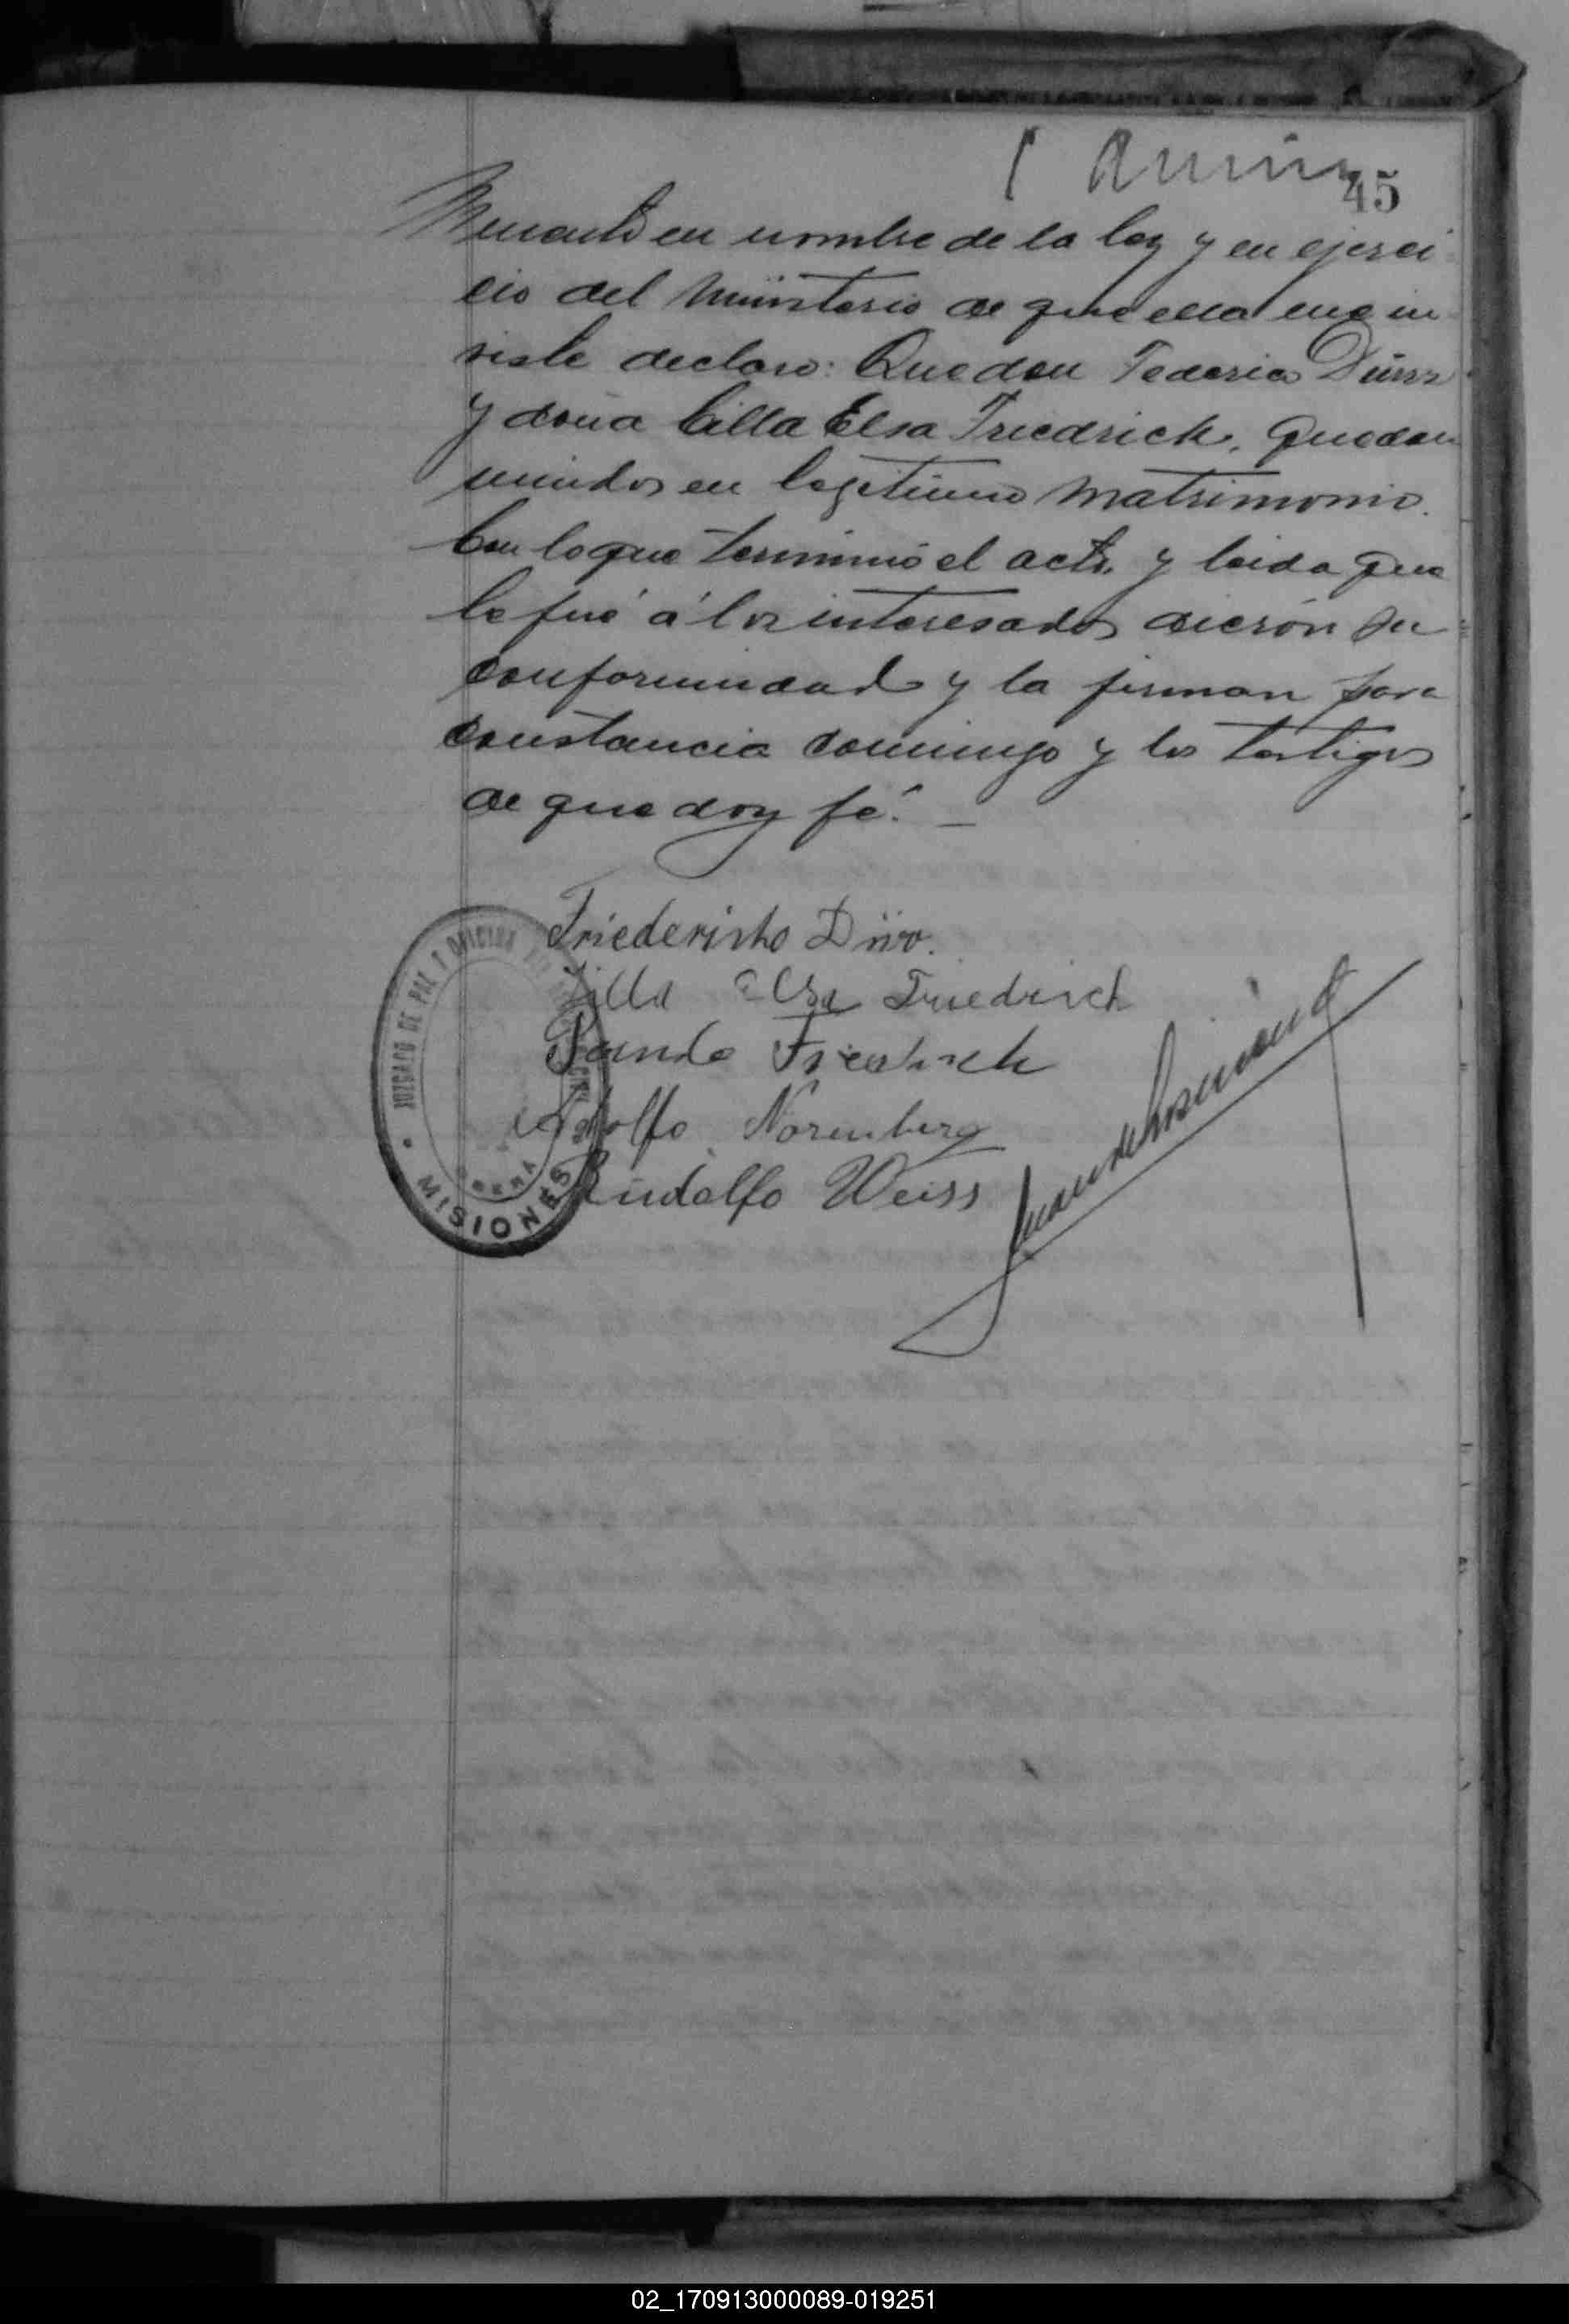 45
en nombre de la ley y en ejerci
cio del Ministerio de que ella me in
viste declaro: Quedan Federico Dürr
y doña Cilla Elsa Friedrich, quedan
unidos en legitimo Matrimonio.
Con lo que terminó el acto, y leida que
le fué á los interesados dierón su
conformidad y la firman para
constancia conmigo y los testigos
de que doy fé. —
Dürr.
Cilla Elsa Friedrich
Friedrich
Adolfo Norenberg
Rudolfo Weiss
JUZGADO DE PAZ Y OFICINA
MISIONES
02_170913000089-019251